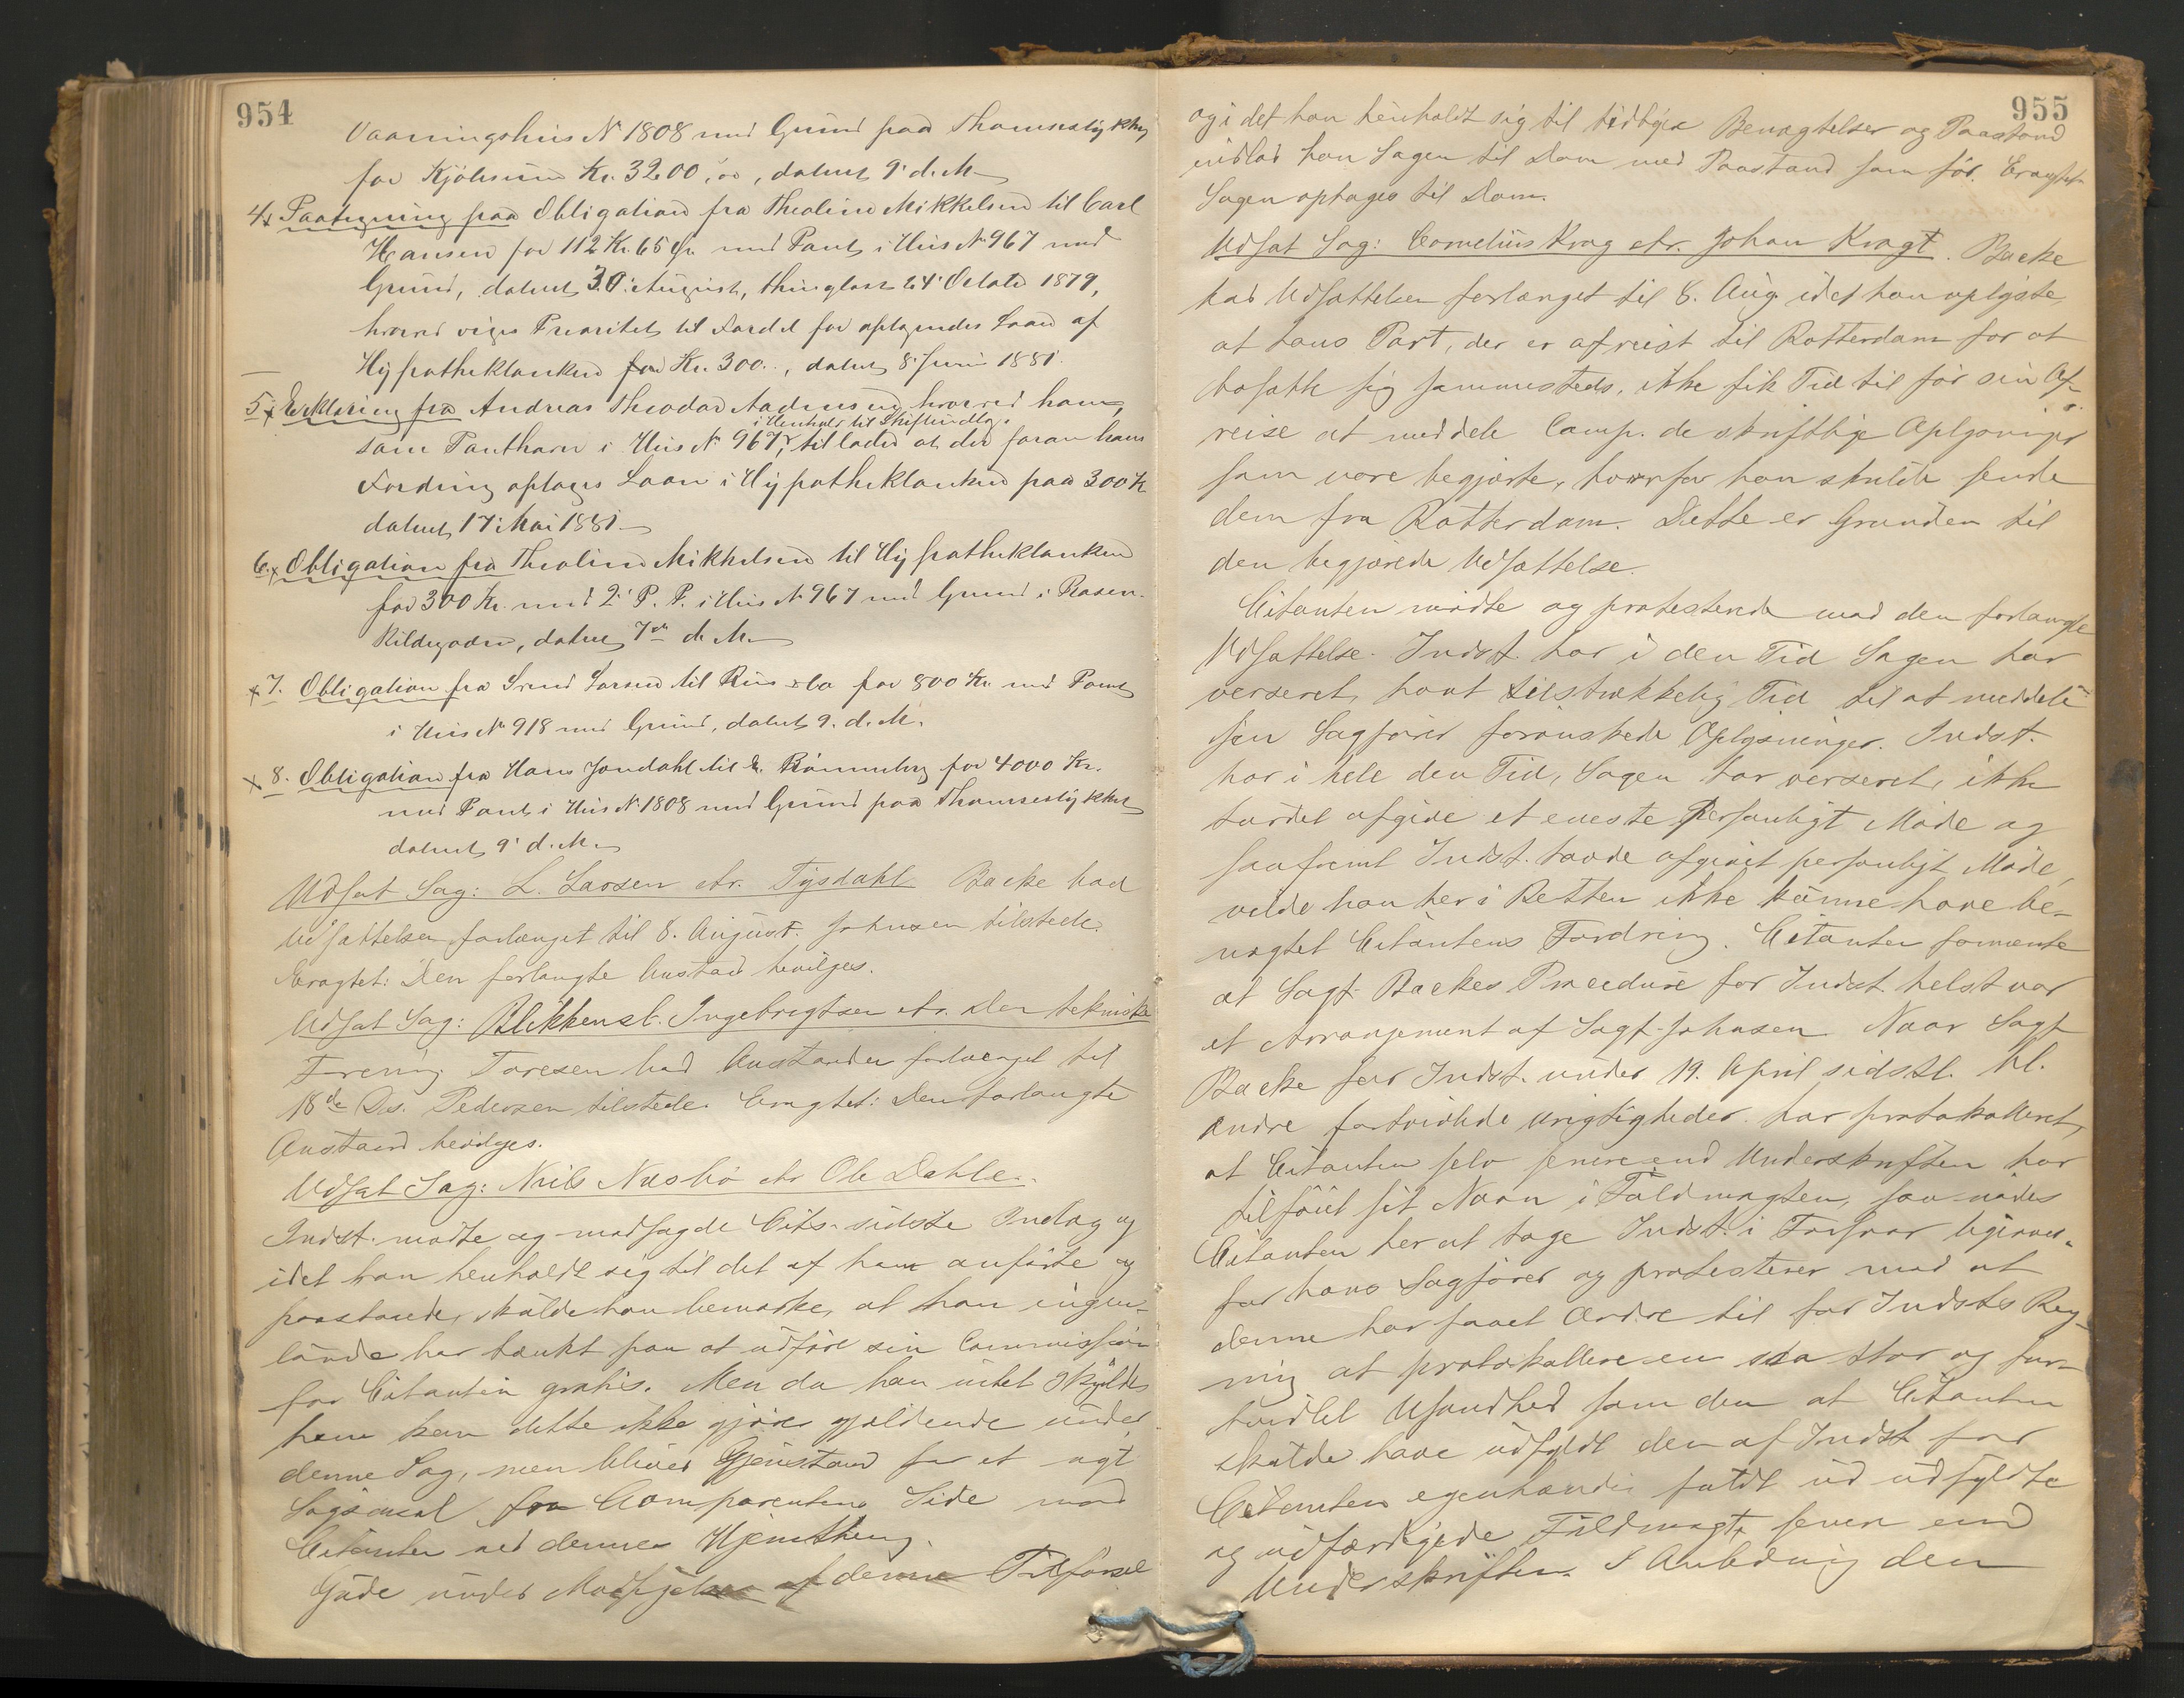 954
Vaaningshus No 1808 med Grund paa Thomsestykket,
for Kjöbesum Kr. 3200,00, datert 9' d. M.
4x Paategning paa Obligation fra Theoline Mikkelsen til Carl
Hansen for 112 Kr. 65 Øre med Pant i Hus No 967 med
Grund, datert 30' August, thinglæst 24' October 1879,
hvorved viges Prioritet til Fordel for optagendes Laan af
Hypothekbanken for Kr. 300.., datert 8' Juni 1881.
5x Erklæring fra Andreas Theodor Aadnesen hvorved han,
i Henhold til Skifteudlæg,
som Panthaver i Hus No 967, tillader at der foran hans
Fordring optages Laan i Hypothekbanken paa 300 Kr
datert 17' Mai 1881.
6.x Obligation fra Theoline Mikkelsen til Hypothekbanken
for 300 Kr. med 2' P. P. i Hus No 967 med Grund i Rosen-
kildegaden, datert 7de d. M.
x7. Obligation fra Svend Larsen til Riis & Co for 800 Kr. med Pant
i Hus No 918 med Grund, datert 9. d. M.
x8. Obligation fra Hans Jondahl til E. Rönneberg for 4000 Kr.
med Pant i Hus No 1808 med Grund paa Thomsestykket
datert 9' d. M.
Udsat Sag: L. Larsen ctr. Tysdahl Backe bad
Udsættelsen forlænget til 8. August. Johnsen tilstede.
Eragtet: Den forlangte Anstand bevilges.
Udsat Sag: Blikkensl. Ingebrigtsen ctr. den tekniske
Forening. Toresen bad Anstanden forlænget til
18de Ds. Pedersen tilstede. Eragtet: Den forlangte
Anstand bevilges.
Udsat Sag: Niels Næsbö ctr Ole Dahle.
Indst. mødte og modsagde Cits. sidste Indlæg og
idet han henholdt sig til det af ham anførte og
paastaaede, skulde han bemærke, at han ingen-
lunde har tænkt paa at udføre sin Commission
for Citanten gratis. Men da han intet skyldes
ham kan dette ikke gjøres gjældende under
denne Sag, men bliver Gjenstand for et nyt
Sagsanal fra Comparentens Side mod
Citanten ved dennes Hjemthing.
Gude under Modsigelse af denne Tilførsel
955
og i det han henholdt sig til tidligere Benægtelser og Paastand
indlod han Sagen til Dom med Paastand som før. Eragtet:
Sagen optages til Dom.
Udsat Sag: Cornelius Krag ctr. Johan Kragt. Backe
bad Udsættelsen forlænget til 8. Aug. idet han oplyste,
at hans Part, der er afreist til Rotterdam for at
bosætte sig sammesteds, ikke fik Tid til før sin Af-
reise at meddele Comp. de skriftlige Oplysninger
som vare begjærte, hvorfor han skulde sende
dem fra Rotterdam. Dette er Grunden til
den begjærede Udsættelse.
Citanten mødte og protesterede mod den forlangte
Udsættelse. Indst. har i den Tid Sagen har
verseret, havt tilstrækkelig Tid til at meddele
sin Sagfører forønskede Oplysninger. Indst.
har i hele den Tid, Sagen har verseret, ikke
turdet afgive et eneste personligt Møde og
saafremt Indst. havde afgivet personligt Møde,
vilde han her i Retten ikke kunne have be-
nægtet Citantens Fordring. Citanten formente
at Sagf. Backes Procedure for Indst. helst var
et Arrangement af Sagf. Johnsen. Naar Sagf
Backe for Indst. under 19. April sidstl. bl.
andre fortvivlede urigtigheder har protokolleret,
at Citanten selv senere end Underskriften har
tilføiet sit Navn i Fuldmagten, saa nødes
Citanten her at tage Indst. i Forsvar ligeover-
for hans Sagfører og protesterer mod at
denne har faaet Ordre til for Indsts Reg-
ning at protokollere en saa stor og for-
tvivlet Usandhed som den at Citanten
skulde have udfyldt den af Indst for
Citanten egenhændig fuldt ud udfyldte
og udfærdigede Fuldmagt, senere end
Underskriften. I Anledning den